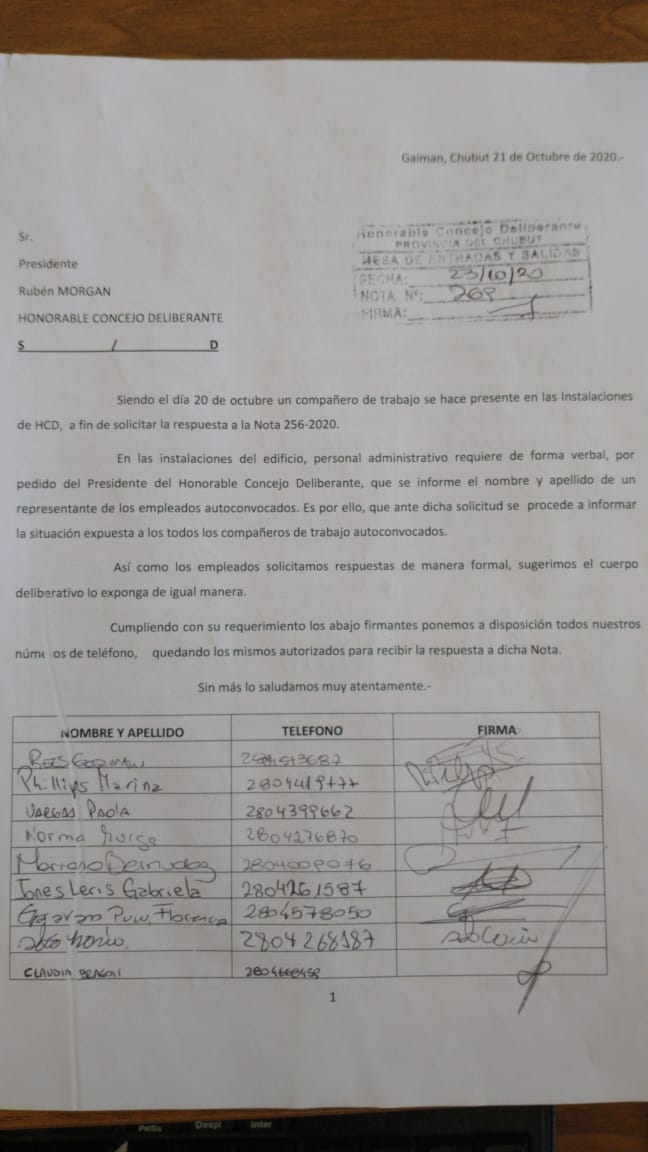 Gaiman, Chubut 21 de Octubre de 2020.-
Honorable Concejo Deliberante
PROVINCIA DEL CHUBUT
MESA DE ENTRADAS Y SALIDAS
FECHA: 23/10/20
NOTA Nº:
FIRMA:
Sr.
Presidente
Rubén MORGAN
HONORABLE CONCEJO DELIBERANTE
S / D
Siendo el día 20 de octubre un compañero de trabajo se hace presente en las Instalaciones
de HCD, a fin de solicitar la respuesta a la Nota 256-2020.
En las instalaciones del edificio, personal administrativo requiere de forma verbal, por
pedido del Presidente del Honorable Concejo Deliberante, que se informe el nombre y apellido de un
representante de los empleados autoconvocados. Es por ello, que ante dicha solicitud se procede a informar
la situación expuesta a los todos los compañeros de trabajo autoconvocados.
Así como los empleados solicitamos respuestas de manera formal, sugerimos el cuerpo
deliberativo lo exponga de igual manera.
Cumpliendo con su requerimiento los abajo firmantes ponemos a disposición todos nuestros
núme os de teléfono, quedando los mismos autorizados para recibir la respuesta a dicha Nota.
Sin más lo saludamos muy atentamente.-
NOMBRE Y APELLIDO TELEFONO FIRMA
REES GERMAN
Phillips Marina 2804419777
VARGAS PAOLA 2804399662
Norma 2804276870
Mariano Bermudez 2804009076
Jones Leris Gabriela 2804261587
Florencia 2804578050
2804268187
CLAUDIA
1
Despl Inter